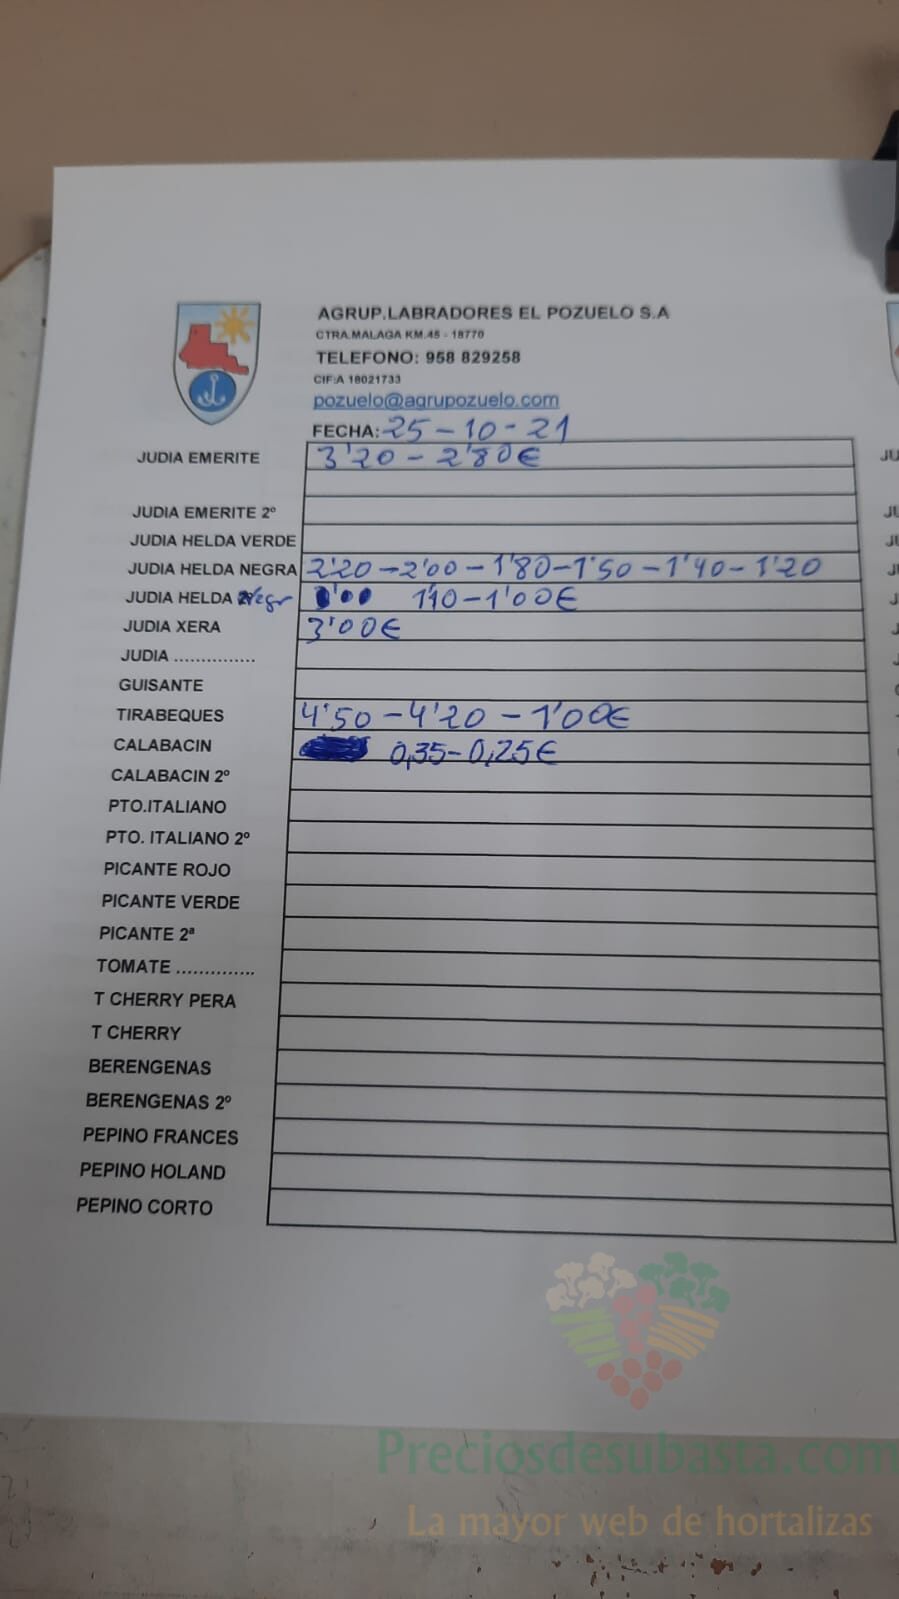 AGRUP.LABRADORES EL POZUELO S.A
CTRA.MALAGA KM.45 - 18770
TELEFONO: 958 829258
CIF:A 18021733
pozuelo@agrupozuelo.com
FECHA: 25-10-21
JUDIA EMERITE 3'20 - 2'80€
JUDIA EMERITE 2º
JUDIA HELDA VERDE
JUDIA HELDA NEGRA 2'20-2'00-1'80-1'50-1'40-1'20
JUDIA HELDA Negr 1'10-1'00€
JUDIA XERA 3'00€
JUDIA ...............
GUISANTE
TIRABEQUES 4'50-4'20-1'00€
CALABACIN 0,35-0,25€
CALABACIN 2º
PTO.ITALIANO
PTO. ITALIANO 2º
PICANTE ROJO
PICANTE VERDE
PICANTE 2ª
TOMATE ..............
T CHERRY PERA
T CHERRY
BERENGENAS
BERENGENAS 2º
PEPINO FRANCES
PEPINO HOLAND
PEPINO CORTO
Preciosdesubasta.com
La mayor web de hortalizas